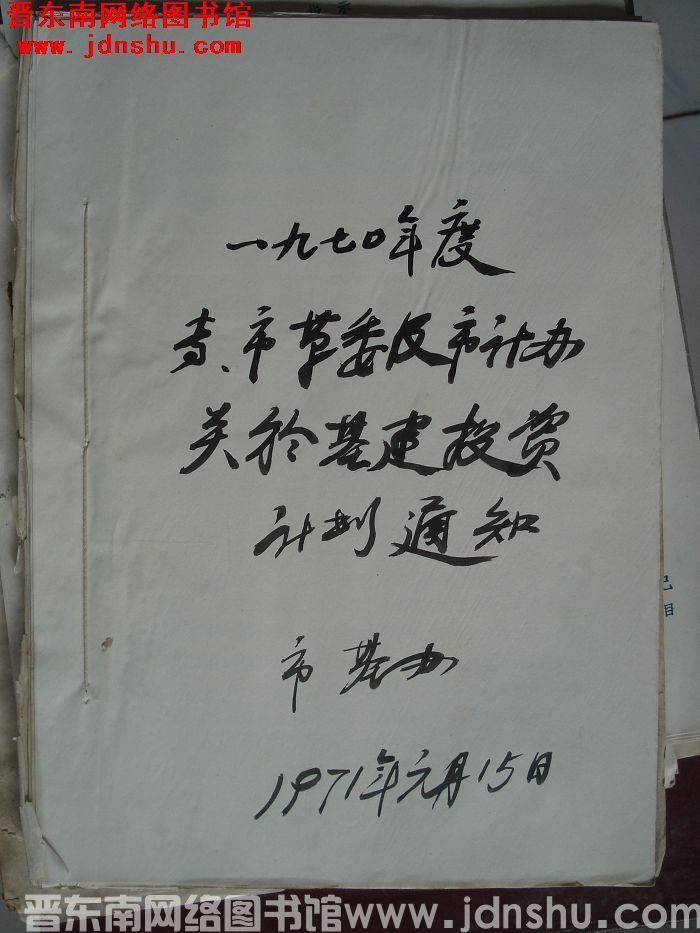 晋东南网络图书馆
www.jdnshu.com
一九七〇年度
专、市革委及市计办
关於基建投资
计划通知
市基办
1971年元月15日
晋东南网络图书馆www.jdnshu.com